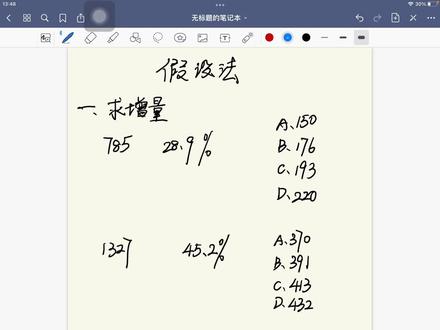 13:48
30%
无标题的笔记本
假设法
一、求增量
785 28.9%
A、150
B、176
C、193
D、220
1327 45.2%
A、370
B、391
C、413
D、432